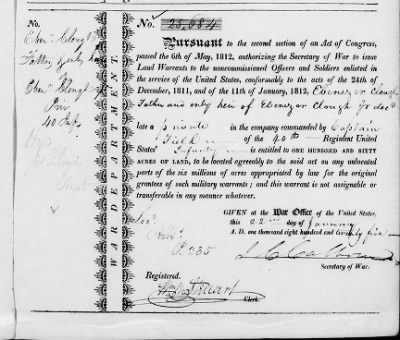 No.
No. 25,684
Eben. Clough
Father
Eben Clough
Priv
40 Inf.
WAR DEPARTMENT.
Pursuant to the second section of an Act of Congress,
passed the 6th of May, 1812, authorizing the Secretary of War to issue
Land Warrants to the noncommissioned Officers and Soldiers enlisted in
the service of the United States, conformably to the acts of the 24th of
December, 1811, and of the 11th of January, 1812, Ebenezer Clough
Father and only heir of Ebenezer Clough Jr dec
late a private in the company commanded by Captain
of the 40th Regiment United
States' Infantry is entitled to ONE HUNDRED AND SIXTY
ACRES OF LAND, to be located agreeably to the said act on any unlocated
parts of the six millions of acres appropriated by law for the original
grantees of such military warrants; and this warrant is not assignable or
transferable in any manner whatever.
GIVEN at the War Office of the United States,
this 22 day of January
A. D. one thousand eight hundred and twenty five
P. 235
J. C. Calhoun
Secretary of War.
Registered.
Clerk.